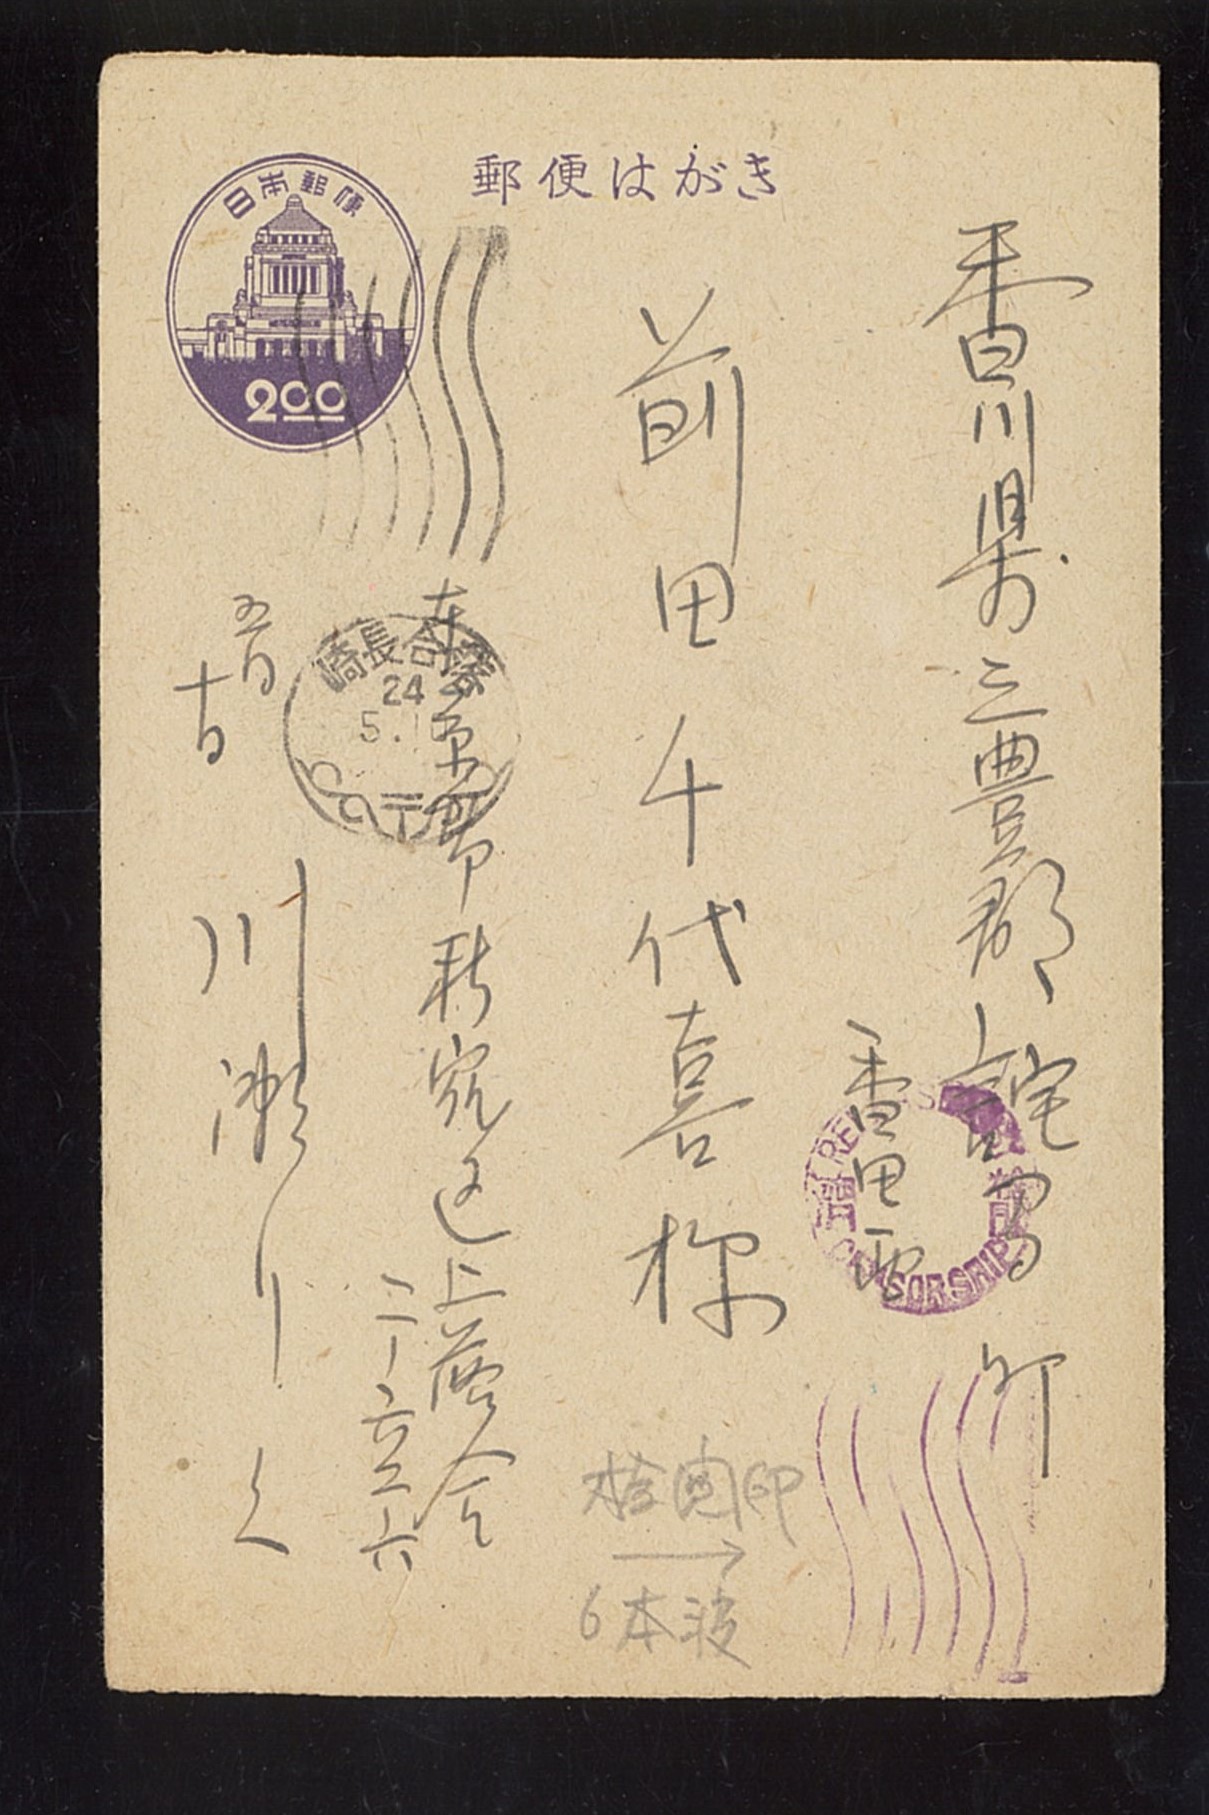 郵便はがき
日本郵便
2.00
香川県三豊郡詫間町
香田
前田千代喜様
落合長崎
24
5.1
東京都新宿区上落合
二ノ六
川瀬
五月
十日
RELEASED
CENSORSHIP
検閲印
→
6本波